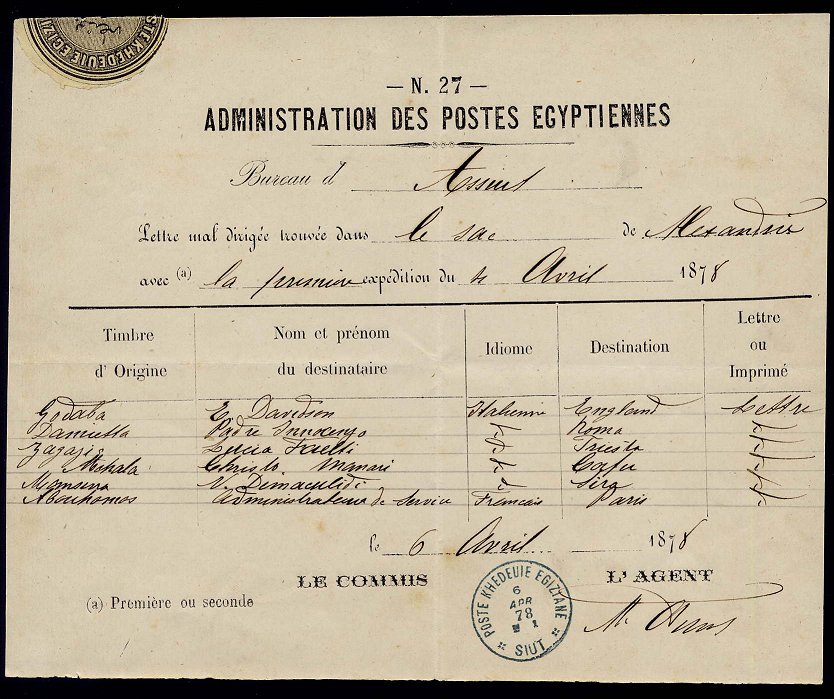 STE KHEDEUIE EGIZI
— N. 27 —
ADMINISTRATION DES POSTES EGYPTIENNES
Bureau d' Assiut
Lettre mal dirigée trouvée dans le sac de Alexandrie
avec (a) la première expédition du 4 Avril 1878
Timbre d'Origine Nom et prénom du destinataire Idiome Destination Lettre ou Imprimé
Godaba E. Davidson Italienne England Lettre
Damietta Padre Innocenzo " Roma "
Zagazig Lucia " Trieste "
Mehala Christo " Corfu "
Mansura N. " Sira "
Abouhomos Administrateur de Service Francais Paris "
le 6 Avril 1878
LE COMMIS L'AGENT
(a) Première ou seconde
POSTE KHEDEUIE EGIZIANE
6
APR
78
SIUT